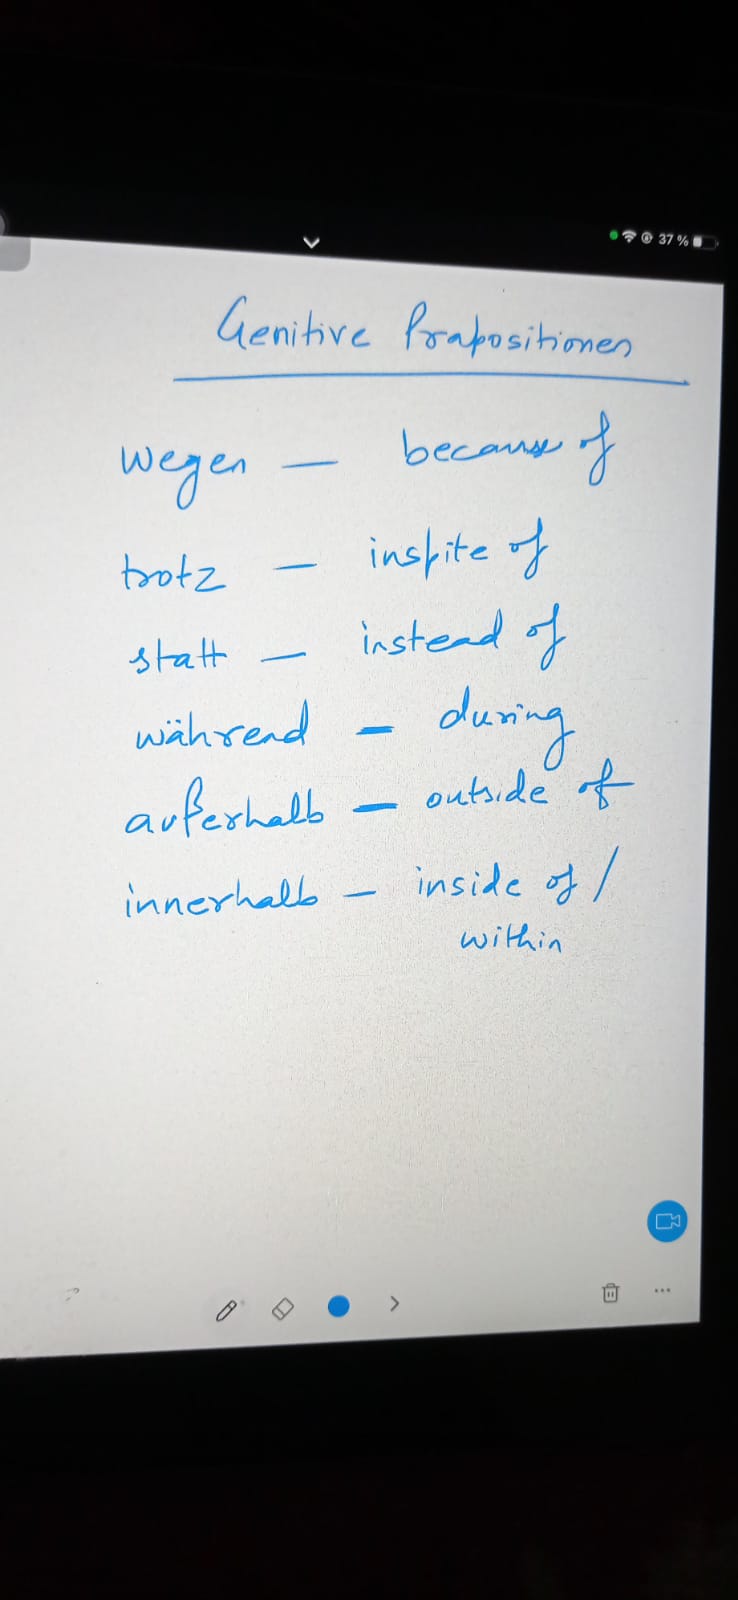 37 %
Genitive Prapositionen
wegen — because of
trotz — inspite of
statt — instead of
während — during
außerhalb — outside of
innerhalb — inside of /
within